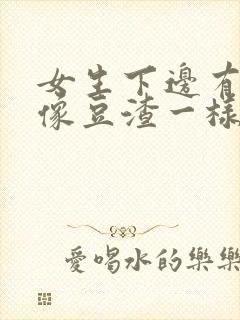 女生下邊有
像豆渣一樣
愛喝水的樂樂